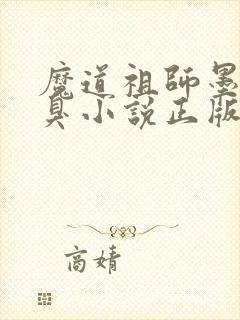 魔道祖師墨
臭小說正版
高婧